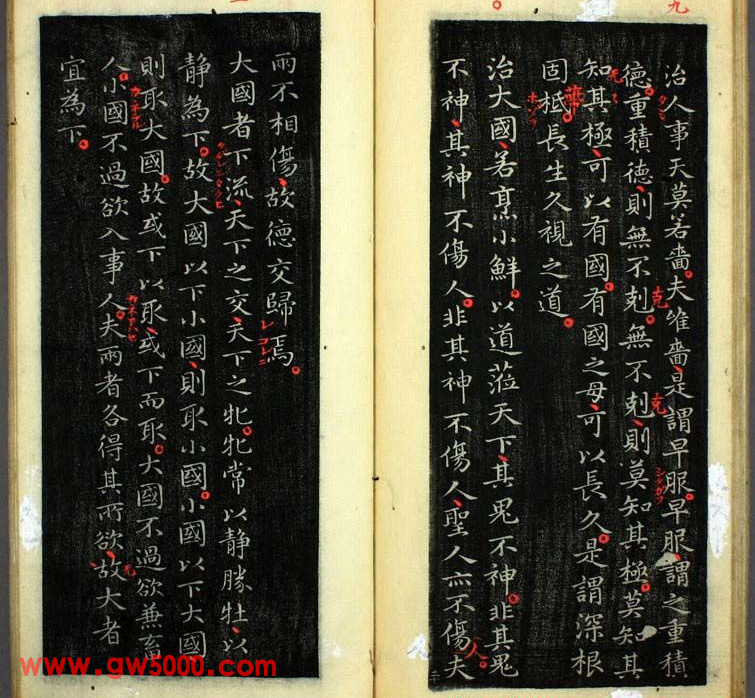 九
治人事天莫若嗇夫唯嗇是謂早服早服謂之重積
德重積德則無不剋無不剋則莫知其極莫知其
知其極可以有國有國之母可以長久是謂深根
固柢長生久視之道
治大國若烹小鮮以道蒞天下其鬼不神非其鬼
不神其神不傷人非其神不傷人聖人亦不傷夫
人
克
克
兩不相傷故德交歸焉
大國者下流天下之交天下之牝牝常以靜勝牡以
靜為下故大國以下小國則取小國小國以下大國
則取大國故或下以取或下而取大國不過欲兼畜
人小國不過欲入事人夫兩者各得其所欲故大者
宜為下
www.gw5000.com